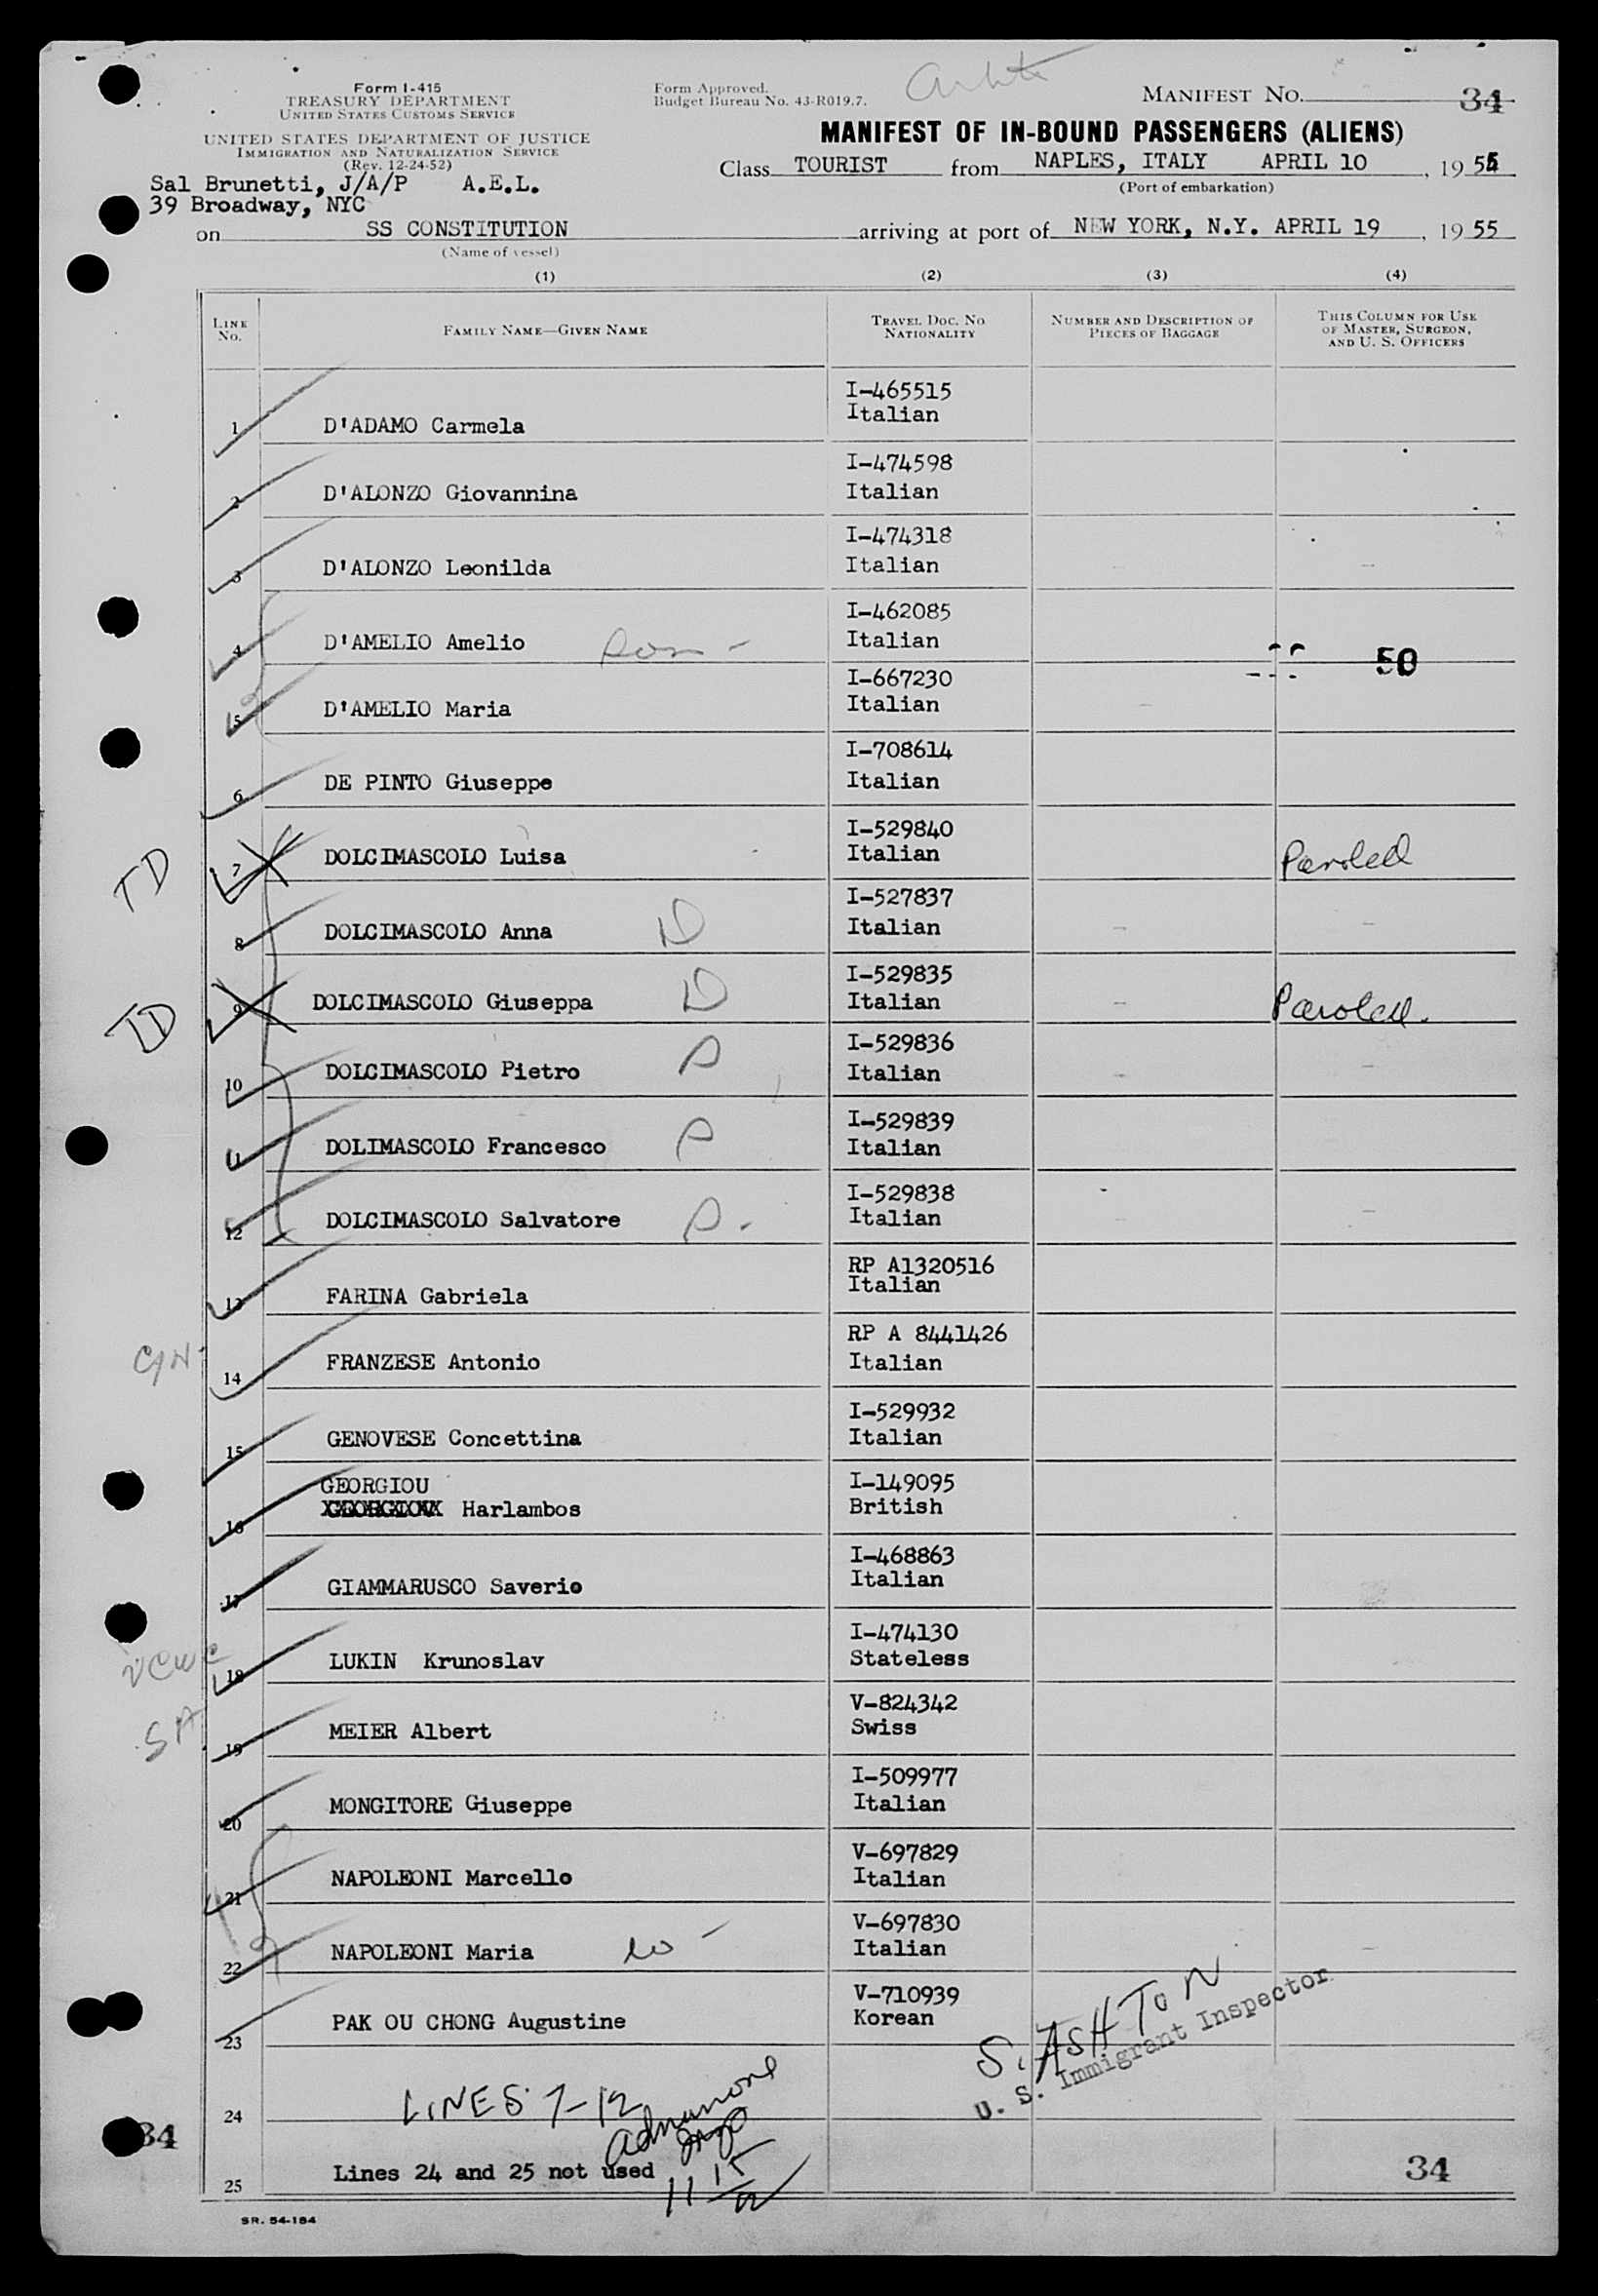 Form I-415
TREASURY DEPARTMENT
UNITED STATES CUSTOMS SERVICE
UNITED STATES DEPARTMENT OF JUSTICE
IMMIGRATION AND NATURALIZATION SERVICE
(Rev. 12-24-52)
Sal Brunetti, J/A/P A.E.L.
39 Broadway, NYC
Form Approved.
Budget Bureau No. 43-R019.7.
MANIFEST NO. 34
MANIFEST OF IN-BOUND PASSENGERS (ALIENS)
Class TOURIST from NAPLES, ITALY APRIL 10, 1955
(Port of embarkation)
on SS CONSTITUTION arriving at port of NEW YORK, N.Y. APRIL 19, 1955
(Name of vessel)
(1) (2) (3) (4)
LINE No. FAMILY NAME—GIVEN NAME TRAVEL DOC. NO. NATIONALITY NUMBER AND DESCRIPTION OF PIECES OF BAGGAGE THIS COLUMN FOR USE OF MASTER, SURGEON, AND U. S. OFFICERS
1 D'ADAMO Carmela I-465515 Italian
2 D'ALONZO Giovannina I-474598 Italian
3 D'ALONZO Leonilda I-474318 Italian
4 D'AMELIO Amelio I-462085 Italian
50
5 D'AMELIO Maria I-667230 Italian
6 DE PINTO Giuseppe I-708614 Italian
TD 7 DOLCIMASCOLO Luisa I-529840 Italian Paroled
8 DOLCIMASCOLO Anna D I-527837 Italian
TD 9 DOLCIMASCOLO Giuseppa D I-529835 Italian Paroled.
10 DOLCIMASCOLO Pietro I-529836 Italian
11 DOLIMASCOLO Francesco I-529839 Italian
12 DOLCIMASCOLO Salvatore I-529838 Italian
13 FARINA Gabriela RP A1320516 Italian
14 FRANZESE Antonio RP A 8441426 Italian
15 GENOVESE Concettina I-529932 Italian
GEORGIOU
16 Harlambos I-149095 British
17 GIAMMARUSCO Saverio I-468863 Italian
18 LUKIN Krunoslav I-474130 Stateless
SA 19 MEIER Albert V-824342 Swiss
20 MONGITORE Giuseppe I-509977 Italian
21 NAPOLEONI Marcello V-697829 Italian
22 NAPOLEONI Maria V-697830 Italian
23 PAK OU CHONG Augustine V-710939 Korean
S. ASHTON
U. S. Immigrant Inspector
24 LINES 7-12
34
25 Lines 24 and 25 not used
34
SR. 54-184